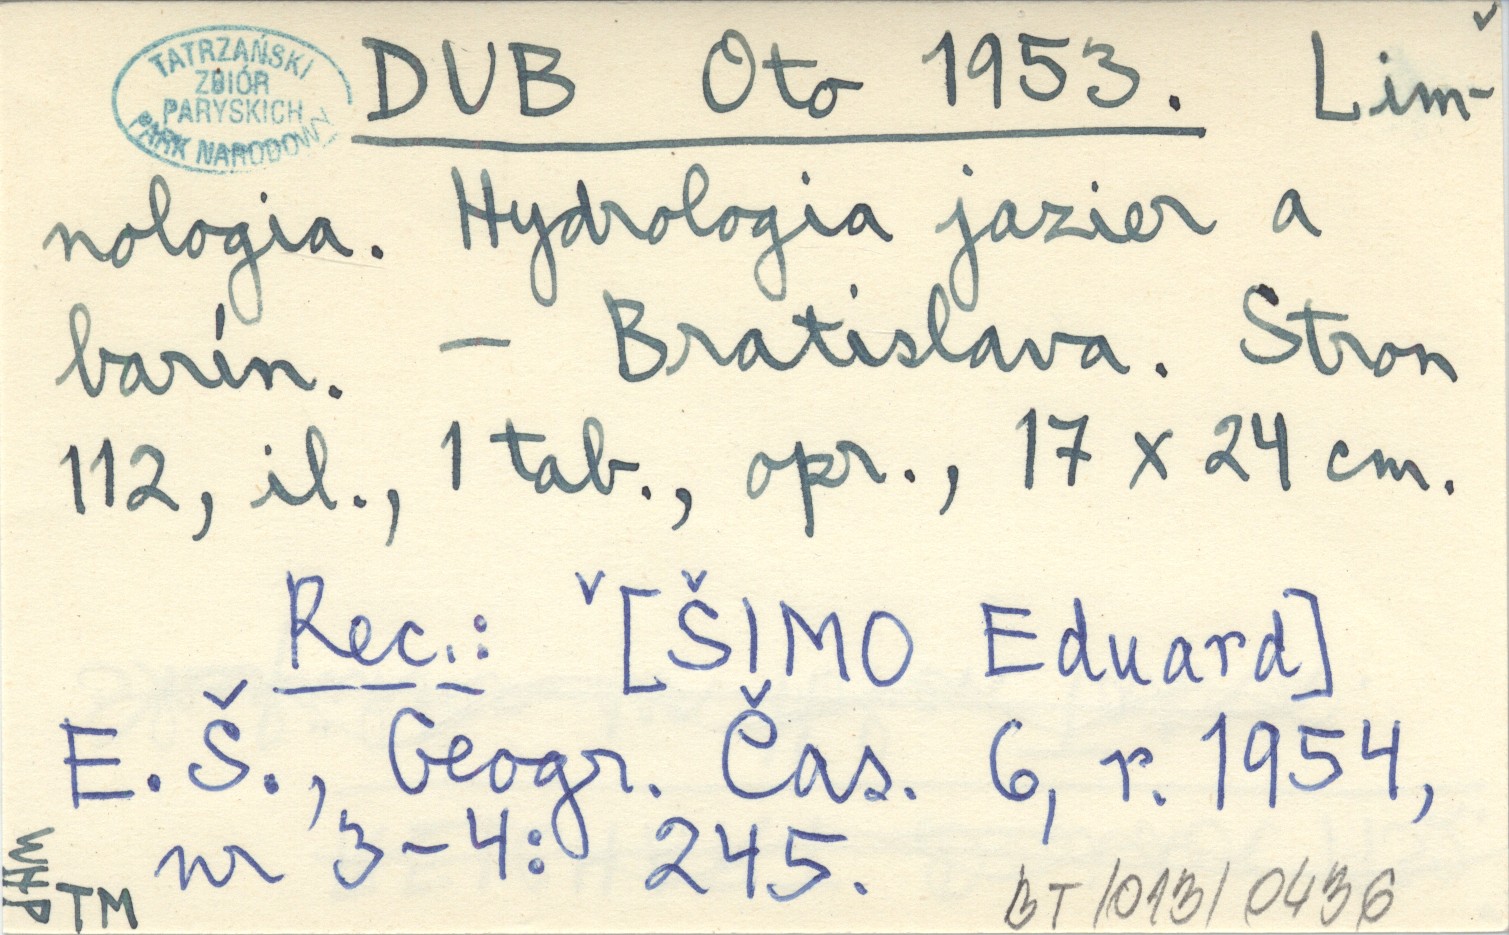 TATRZAŃSKI
ZBIÓR
PARYSKICH
PARK NARODOWY
DUB Oto 1953. Lim-
nologia. Hydrologia jazier a
barín. – Bratislava. Stron
112, il., 1 tab., opr., 17 x 24 cm.
Rec.: [ŠIMO Eduard]
E. Š., Geogr. Čas. 6, r. 1954,
nr 3-4: 245.
WHP
TM
BT/013/0436